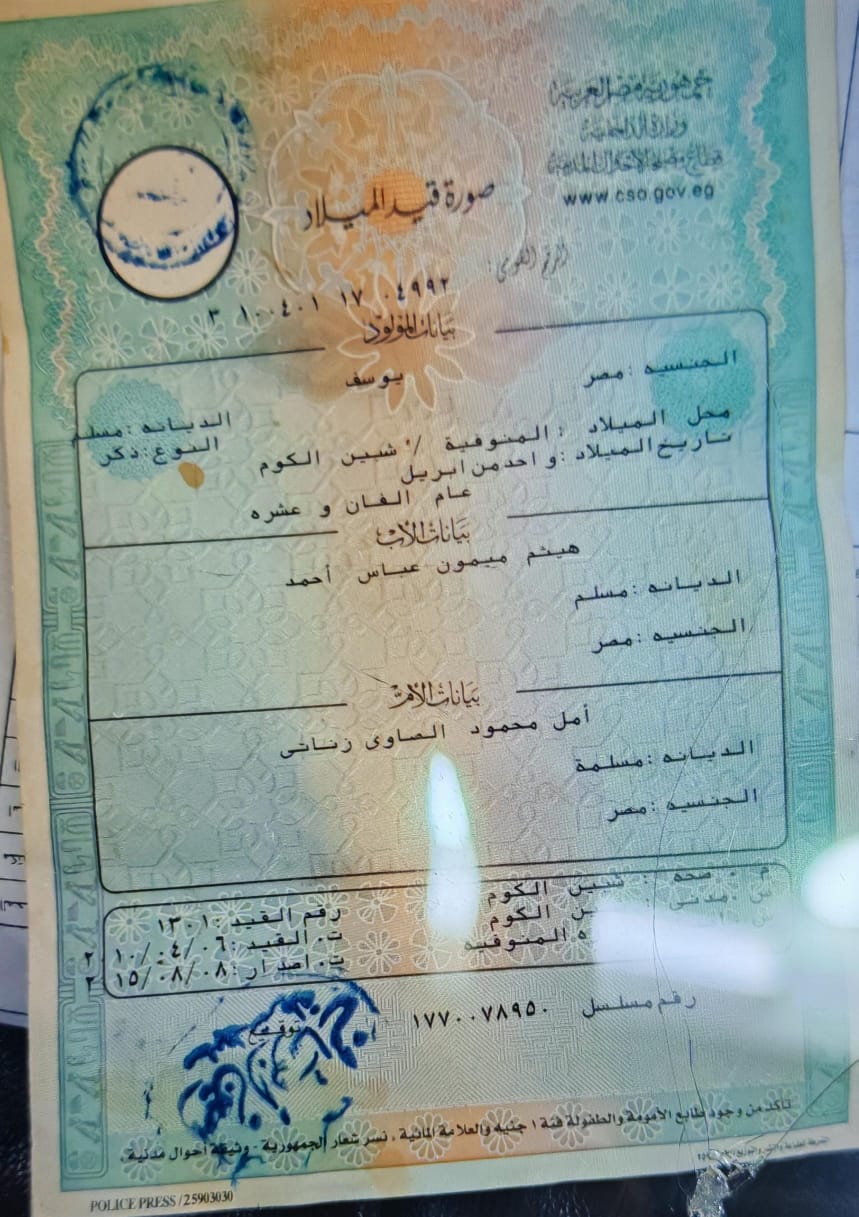 جمهورية مصر العربية
وزارة الداخلية
قطاع مصلحة الأحوال المدنية
www.cso.gov.eg
صورة قيد الميلاد
الرقم القومى :
٣ ١٠٠٤٠١ ١٧ ٠٤٩٩٢
بيانات المولود
يوسف
الجنسيه : مصر
الديانه : مسلم
محل الميلاد : المنوفية / شبين الكوم
النوع : ذكر
تاريخ الميلاد : واحد من ابريل
عام الفان و عشره
بيانات الأب
هيثم ميمون عباس أحمد
الديانه : مسلم
الجنسيه : مصر
بيانات الأم
أمل محمود الصاوى زناتى
الديانه : مسلمة
الجنسيه : مصر
م . صحه : شبين الكوم
رقم القيد : ١٣٠١
س . مدنى : الكوم
ت . القيد : ٢٠١٠/٠٤/٠٦
المنوفيه
ت . اصدار : ٢٠١٥/٠٨/٠٨
رقم مسلسل ١٧٧٠٠٧٨٩٥٠
توقيع
تأكد من وجود طابع الأمومة والطفولة فئة ١ جنيه والعلامة المائية ، نسر شعار الجمهورية - وثيقة أحوال مدنية .
POLICE PRESS / 25903030